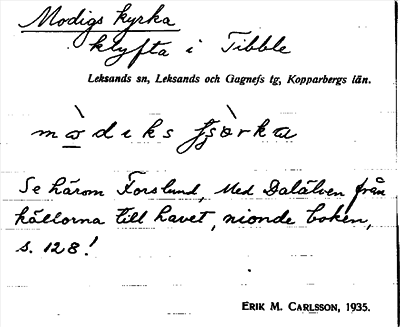 Modigs kyrka
klyfta i Tibble
Leksands sn, Leksands och Gagnefs tg, Kopparbergs län.
mòdiks fjòrka
Se härom Forslund, Med Dalälven från
källorna till havet, nionde boken,
s. 128!
ERIK M. CARLSSON, 1935.